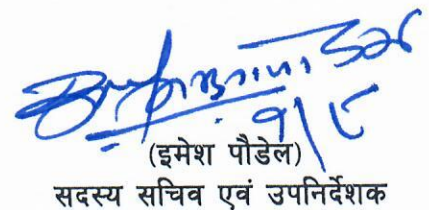 ९/८
(इमेश पौडेल)
सदस्य सचिव एवं उपनिर्देशक